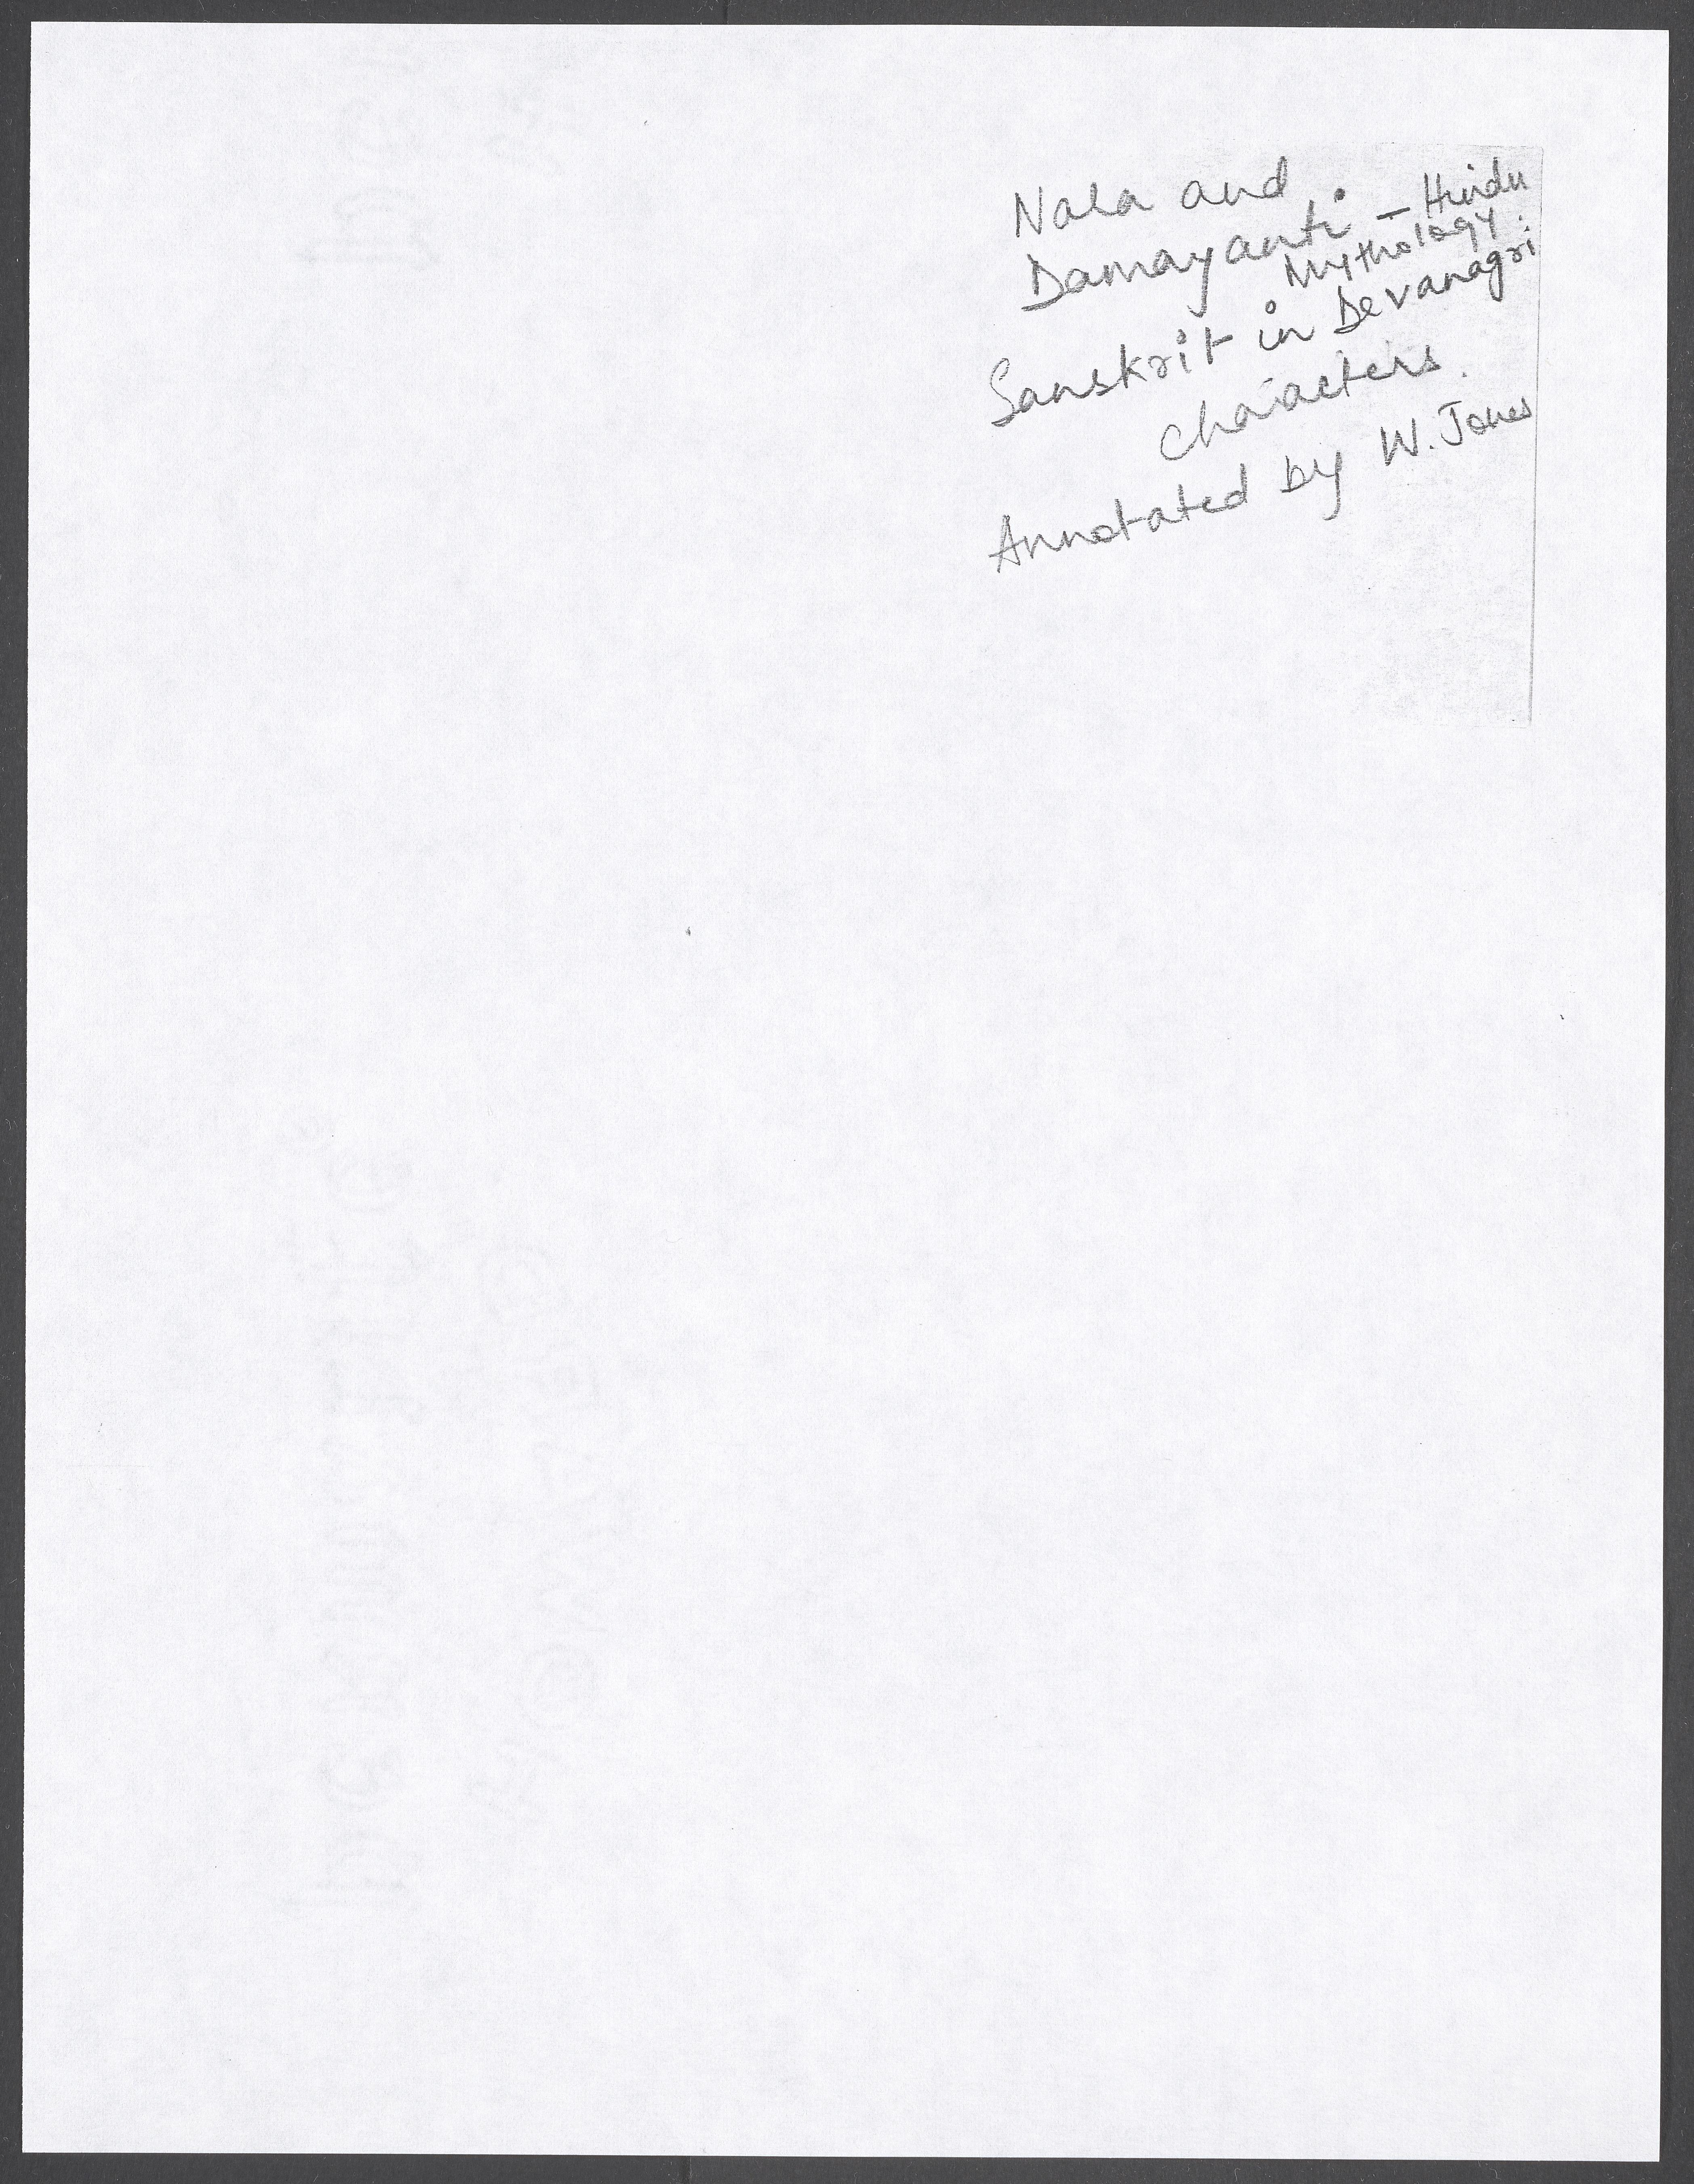 Nala and
Damayanti – Hindu
Mythology.
Sanskrit in Devanagri
characters.
Annotated by W. Jones